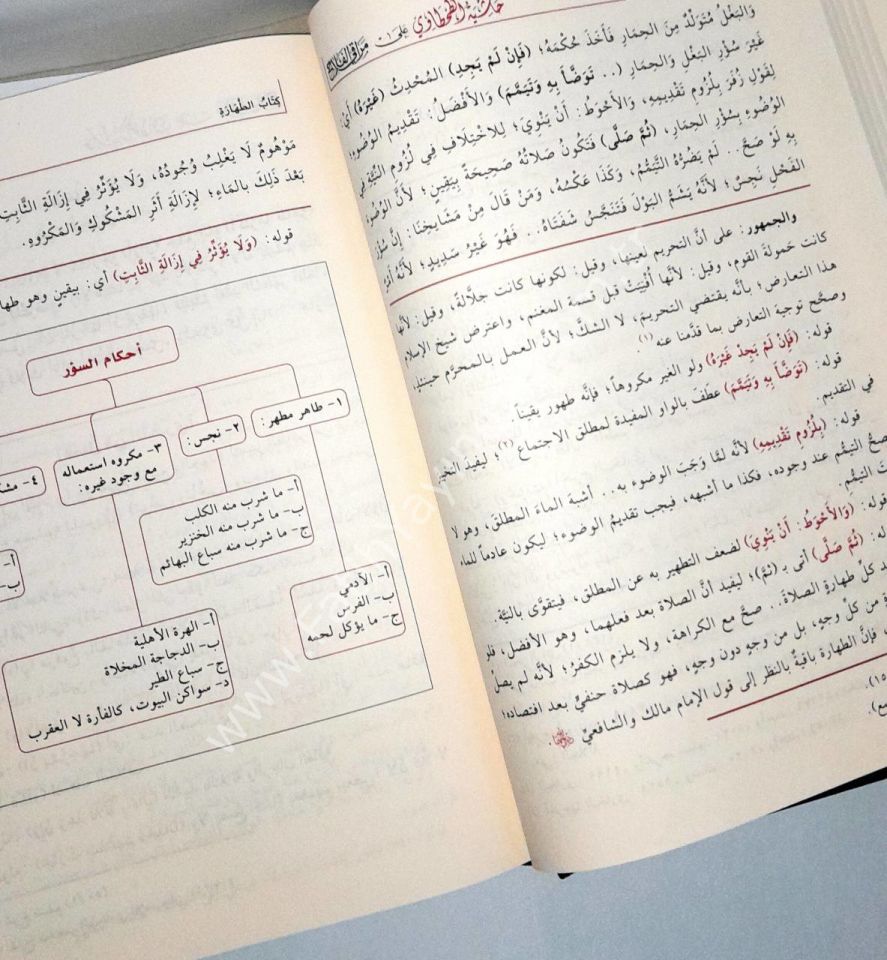 حَاشِيَةُ الطَّحْطَاوِي عَلَى مَرَاقِي الفَلَاحِ
وَالبَغْلُ مُتَوَلِّدٌ مِنَ الحِمَارِ فَأَخَذَ حُكْمَهُ؛ (فَإِنْ لَمْ يَجِدِ) المُحْدِثُ (غَيْرَهُ) أَيْ:
غَيْرَ سُؤْرِ البَغْلِ وَالحِمَارِ (.. تَوَضَّأَ بِهِ وَتَيَمَّمَ) وَالأَفْضَلُ: تَقْدِيمُ الوُضُوءِ،
لِقَوْلِ زُفَرَ بِلُزُومِ تَقْدِيمِهِ، وَالأَحْوَطُ: أَنْ يَنْوِيَ؛ لِلاخْتِلَافِ فِي لُزُومِ النِّيَّةِ فِي
الوُضُوءِ بِسُؤْرِ الحِمَارِ، (ثُمَّ صَلَّى) فَتَكُونُ صَلَاتُهُ صَحِيحَةً بِيَقِينٍ؛ لأَنَّ الوُضُوءَ
بِهِ لَوْ صَحَّ.. لَمْ يَضُرَّهُ التَّيَمُّمُ، وَكَذَا عَكْسُهُ، وَمَنْ قَالَ مِنْ مَشَايِخِنَا: إِنَّ سُؤْرَ
الفَحْلِ نَجِسٌ؛ لأَنَّهُ يَشَمُّ البَوْلَ فَتَتَنَجَّسُ شَفَتَاهُ.. فَهُوَ غَيْرُ سَدِيدٍ؛ لأَنَّهُ أَمْرٌ
والجمهور: على أنَّ التحريم لعينها، وقيل: لكونها كانت جلَّالةً، وقيل: لأنَّها
كانت حَمولةَ القوم، وقيل: لأنَّها أُفنِيَتْ قبل قسمة المغنم، واعترض شيخ الإسلام
هذا التعارض؛ بأنَّه يقتضي التحريم، لا الشكَّ؛ لأنَّ العمل بالمحرِّم حينئذٍ
وصحَّح توجيهَ التعارض بما قدَّمنا عنه (١).
قوله: (فَإِنْ لَمْ يَجِدْ غَيْرَهُ) ولو الغير مكروهاً؛ فإنَّه طهور يقيناً.
قوله: (تَوَضَّأَ بِهِ وَتَيَمَّمَ) عطَفَ بالواو المفيدة لمطلق الاجتماع (٢)؛ ليفيد التخيير
في التقديم.
قوله: (بِلُزُومِ تَقْدِيمِهِ) لأنَّه لمَّا وَجَبَ الوضوء به.. أشبهَ الماءَ المطلق، وهو لا
صحُّ التيمُّم عند وجوده، فكذا ما أشبهه، فيجب تقديمُ الوضوء؛ ليكون عادماً للماء
التيمُّمِ.
قوله: (وَالأَحْوَطُ: أَنْ يَنْوِيَ) لضعف التطهير به عن المطلق، فيتقوَّى بالنِّيَّة.
له: (ثُمَّ صَلَّى) أتى بـ (ثمَّ)؛ ليفيد أنَّ الصلاة بعد فعلهما، وهو الأفضل، فلو
د كلِّ طهارةٍ الصلاةَ.. صحَّ مع الكراهة، ولا يلزم الكفرُ؛ لأنَّه لم يصلِّ
ة من كلِّ وجهٍ، بل من وجهٍ دون وجهٍ، فهو كصلاة حنفيٍّ بعد افتصاده؛
فإنَّ الطهارة باقيةٌ بالنظر إلى قول الإمام مالك والشافعيِّ
١٥).
مع).
كِتَابُ الطَّهَارَةِ
مَوْهُومٌ لَا يَغْلِبُ وُجُودُهُ، وَلَا يُؤَثِّرُ فِي إِزَالَةِ الثَّابِتِ
بَعْدَ ذَلِكَ بِالمَاءِ؛ لِإِزَالَةِ أَثَرِ المَشْكُوكِ وَالمَكْرُوهِ.
قوله: (وَلَا يُؤَثِّرُ فِي إِزَالَةِ الثَّابِتِ) أي: بيقينٍ وهو طها
أحكام السؤر
١- طاهر مطهر:
٢- نجس:
٣- مكروه استعماله
مع وجود غيره:
٤- مشك
أ- الآدمي
ب- الفرس
ج- ما يؤكل لحمه
أ- ما شرب منه الكلب
ب- ما شرب منه الخنزير
ج- ما شرب منه سباع البهائم
أ- الهرة الأهلية
ب- الدجاجة المخلاة
ج- سباع الطير
د- سواكن البيوت، كالفأرة لا العقرب
أ-
ب-